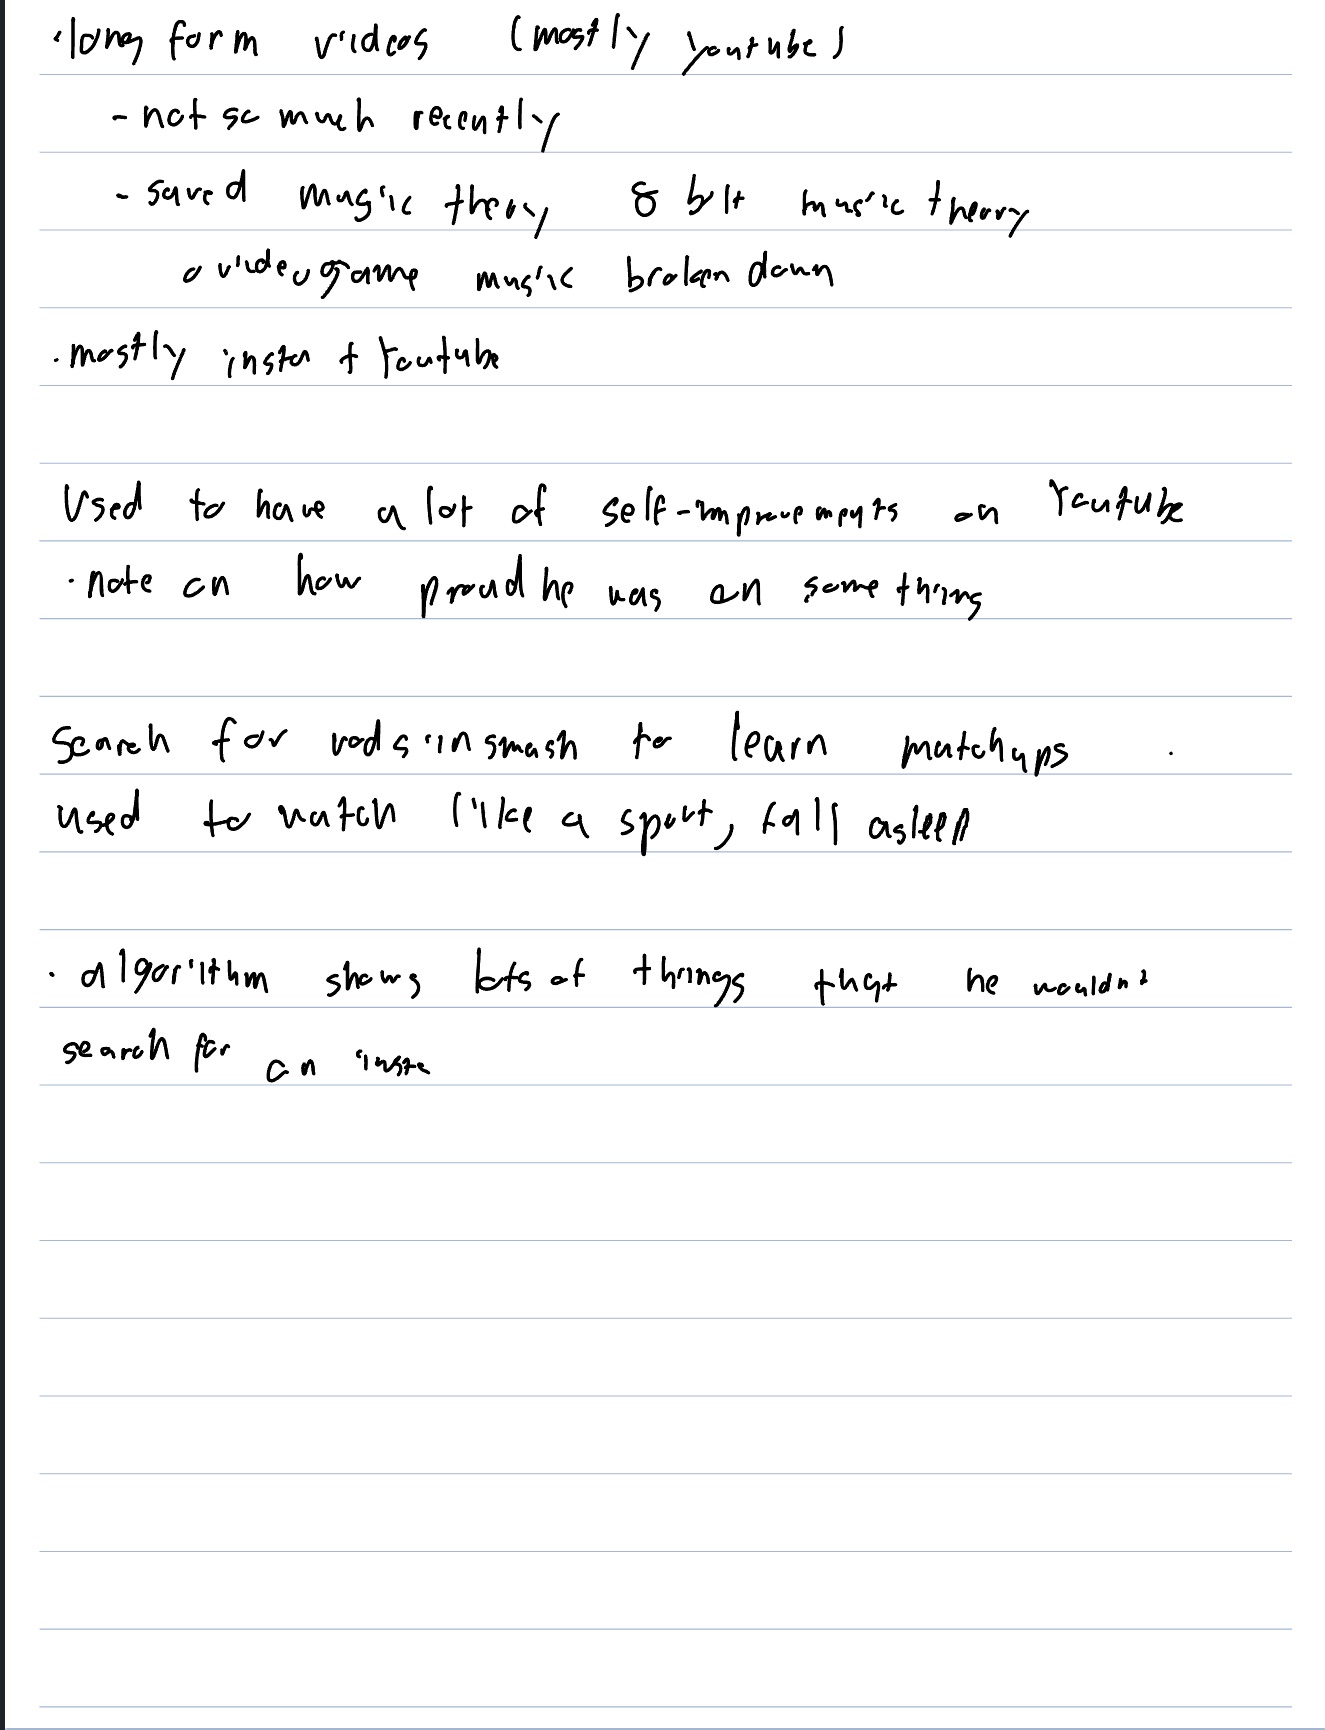 · long form videos (mostly youtube)
- not so much recently
- saved music theory 8 bit music theory
o videogame music broken down
· mostly insta + Youtube
Used to have a lot of self-improvements on Youtube
· note on how proud he was on something
Search for vods in smash to learn matchups .
used to watch like a sport, fall asleep
· algorithm shows lots of things that he wouldnt
search for on insta